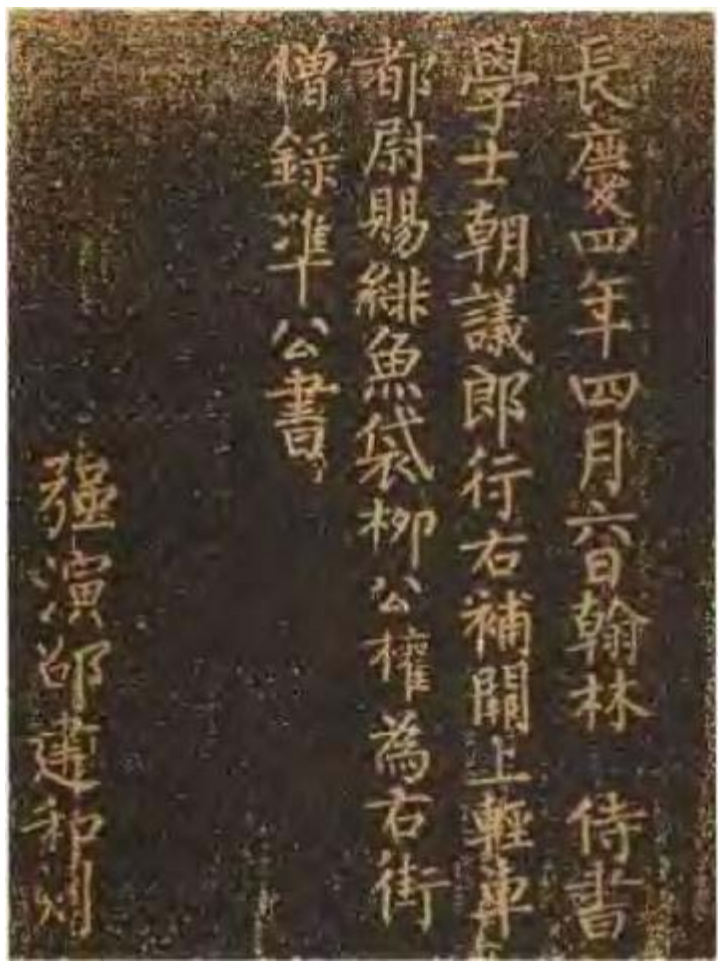 長慶四年四月六日翰林 侍書
學士朝議郎行右補闕上輕車
都尉賜緋魚袋柳公權為右街
僧錄準公書
強演邵建和刻